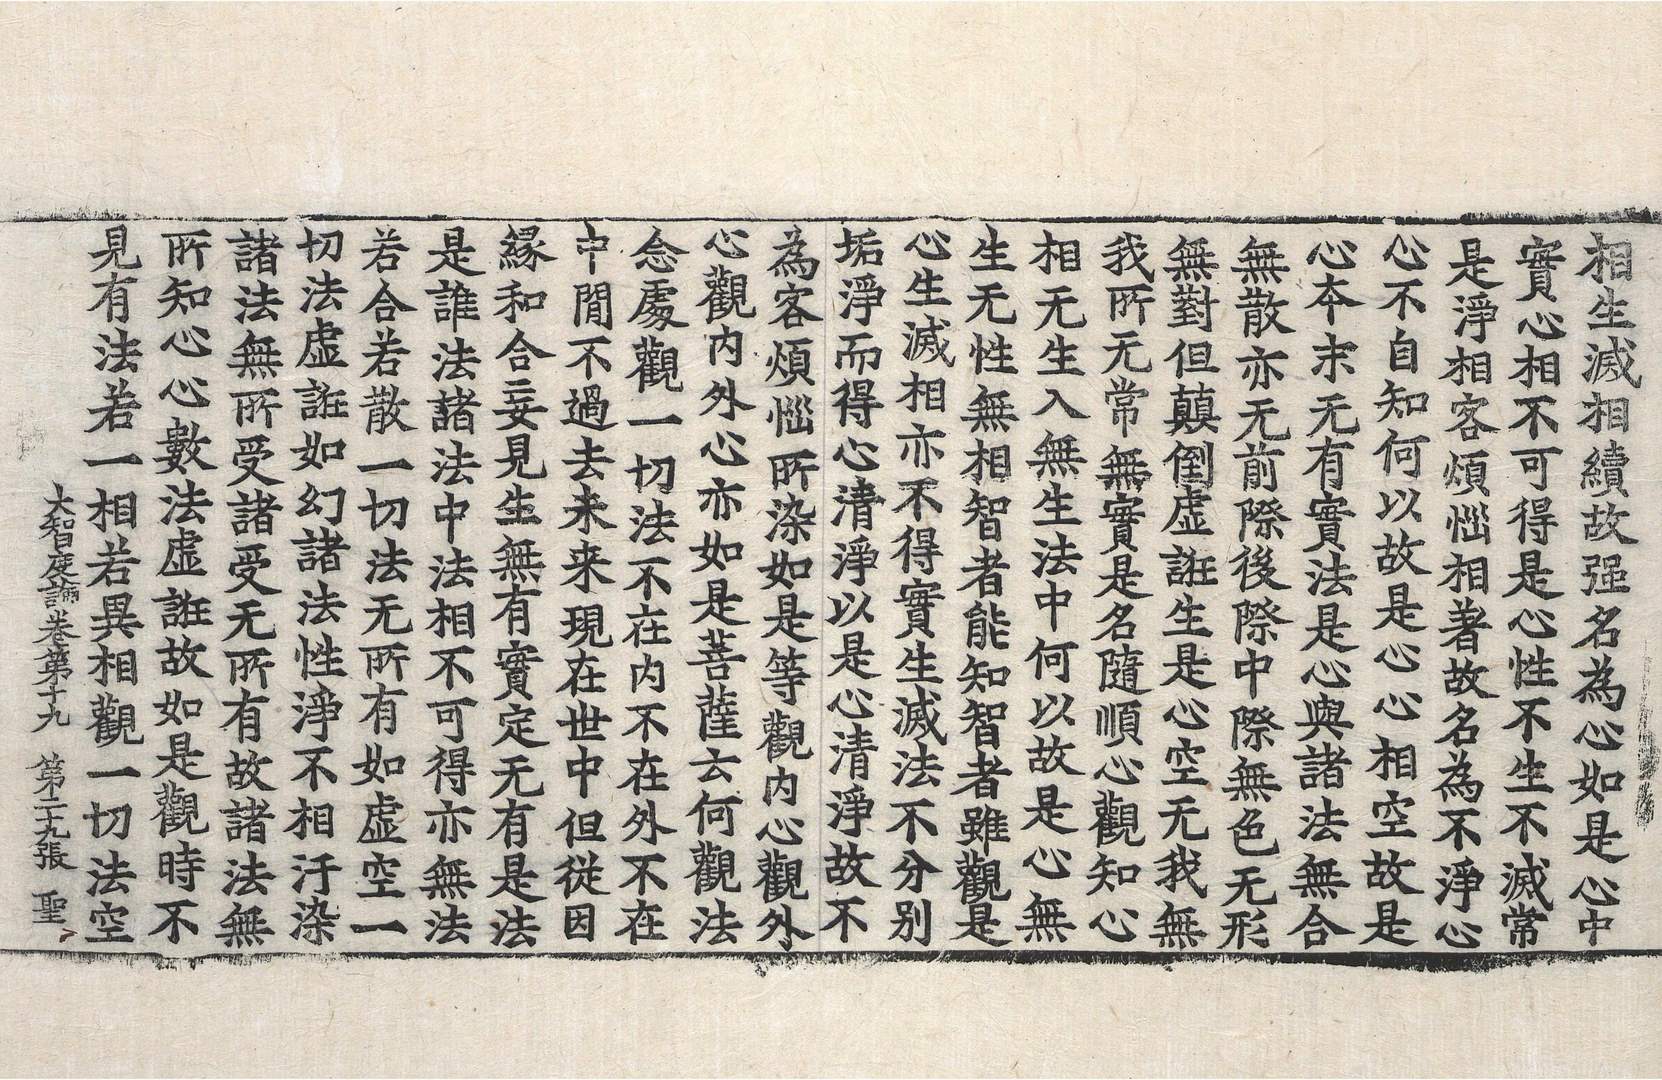 相生滅相續故强名為心如是心中
實心相不可得是心性不生不滅常
是淨相客煩惱相著故名為不淨心
心不自知何以故是心心相空故是
心夲末无有實法是心與諸法無合
無散亦无前際後際中際無色无形
無對但顛倒虛誑生是心空无我無
我所无常無實是名隨順心觀知心
相无生入無生法中何以故是心無
生无性無相智者能知智者雖觀是
心生滅相亦不得實生滅法不分别
垢淨而得心清淨以是心清淨故不
為客煩惱所染如是等觀内心觀外
心觀内外心亦如是菩薩云何觀法
念處觀一切法不在内不在外不在
中閒不過去未来現在世中但從因
緣和合妄見生無有實定无有是法
是誰法諸法中法相不可得亦無法
若合若散一切法无所有如虛空一
切法虛誑如幻諸法性淨不相汙染
諸法無所受諸受无所有故諸法無
所知心心數法虛誑故如是觀時不
見有法若一相若異相觀一切法空
大智度論卷第十九 第二十九張 聖